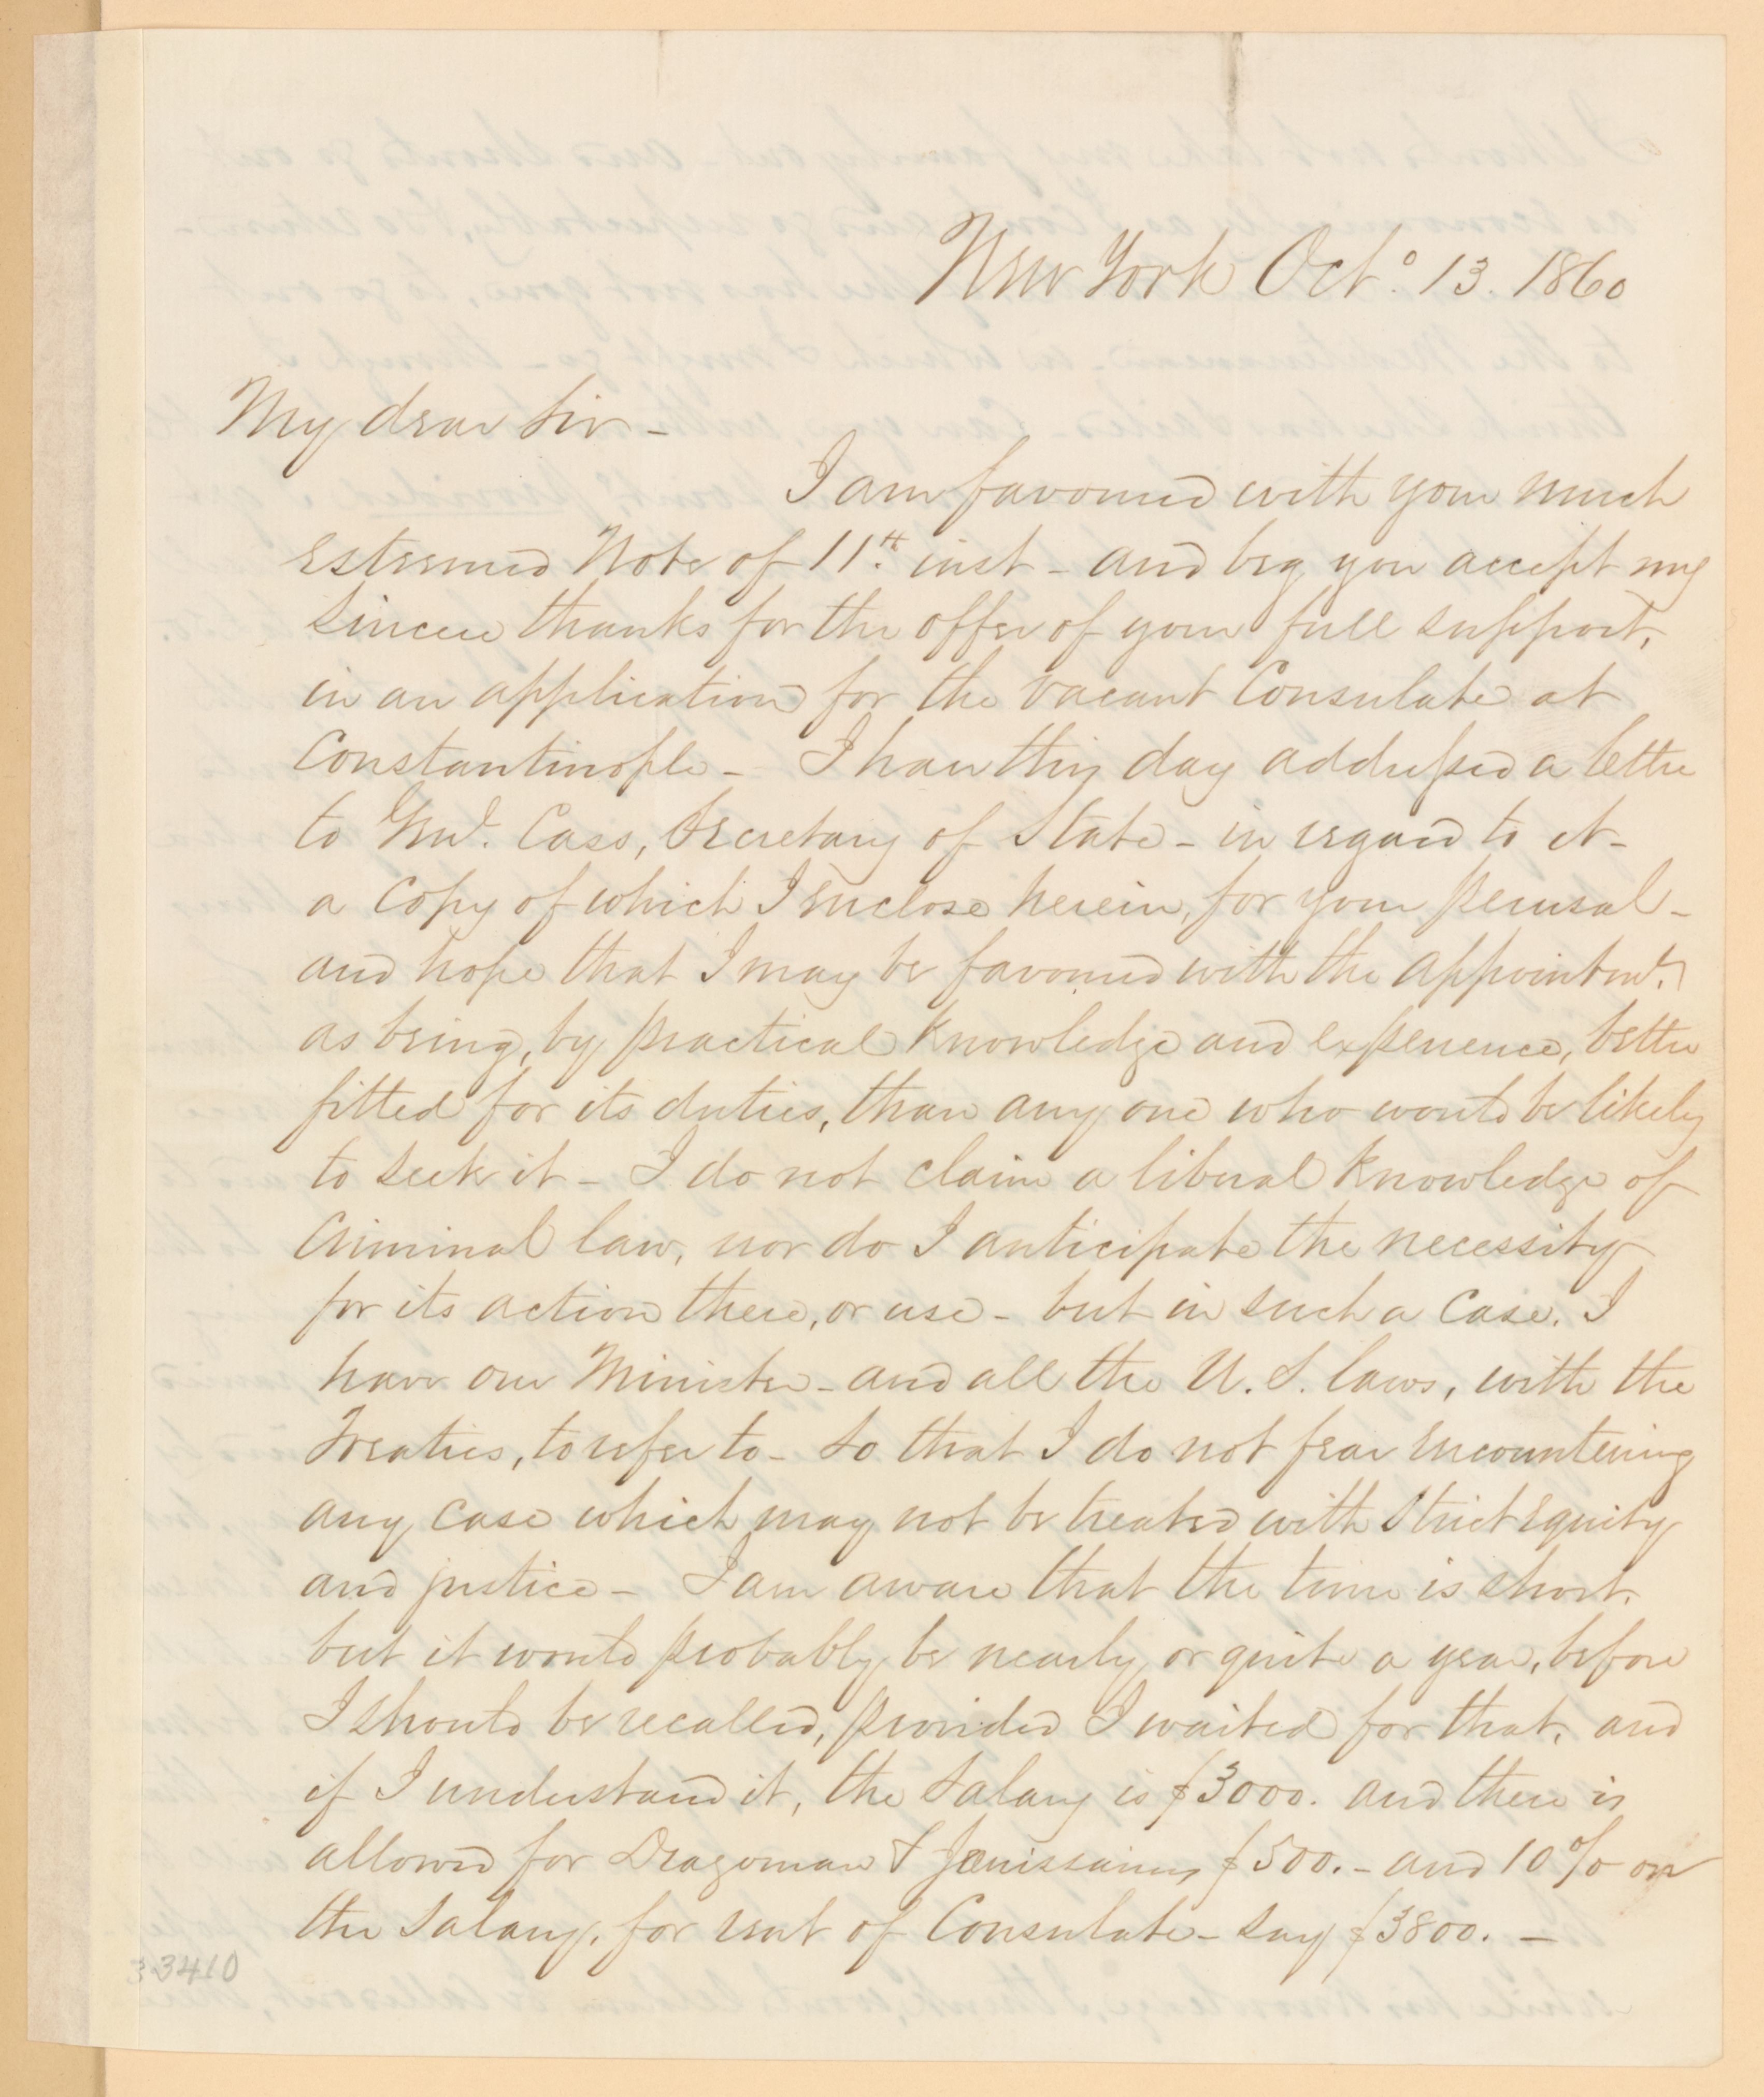 New York Octo. 13. 1860
My dear Sir -
I am favoured with your much
esteemed Note of 11th inst - and beg you accept my
sincere thanks for the offer of your full support,
in an application for the vacant Consulate at
Constantinople - I have this day addressed a letter
to Genl. Cass, Secretary of State - in regard to it -
a Copy of which I enclose herein, for your perusal -
and hope that I may be favoured with the appointmt.
as being, by practical knowledge and experience, better
fitted for its duties, than any one who would be likely
to seek it - I do not claim a liberal knowledge of
Criminal law, nor do I anticipate the necessity
for its action there, or use - but in such a Case. I
have our Minister - and all the U. S. laws, with the
Treaties, to refer to - So that I do not fear encountering
any case which may not be treated with strict equity
and justice - I am aware that the time is short.
but it would probably be nearly or quite a year, before
I should be recalled, provided I waited for that, and
if I understand it, the Salary is $3000. and there is
allowed for Dragoman & Janissaries $500. - and 10% on
the Salary, for rent of Consulate - say $3800. -
33410